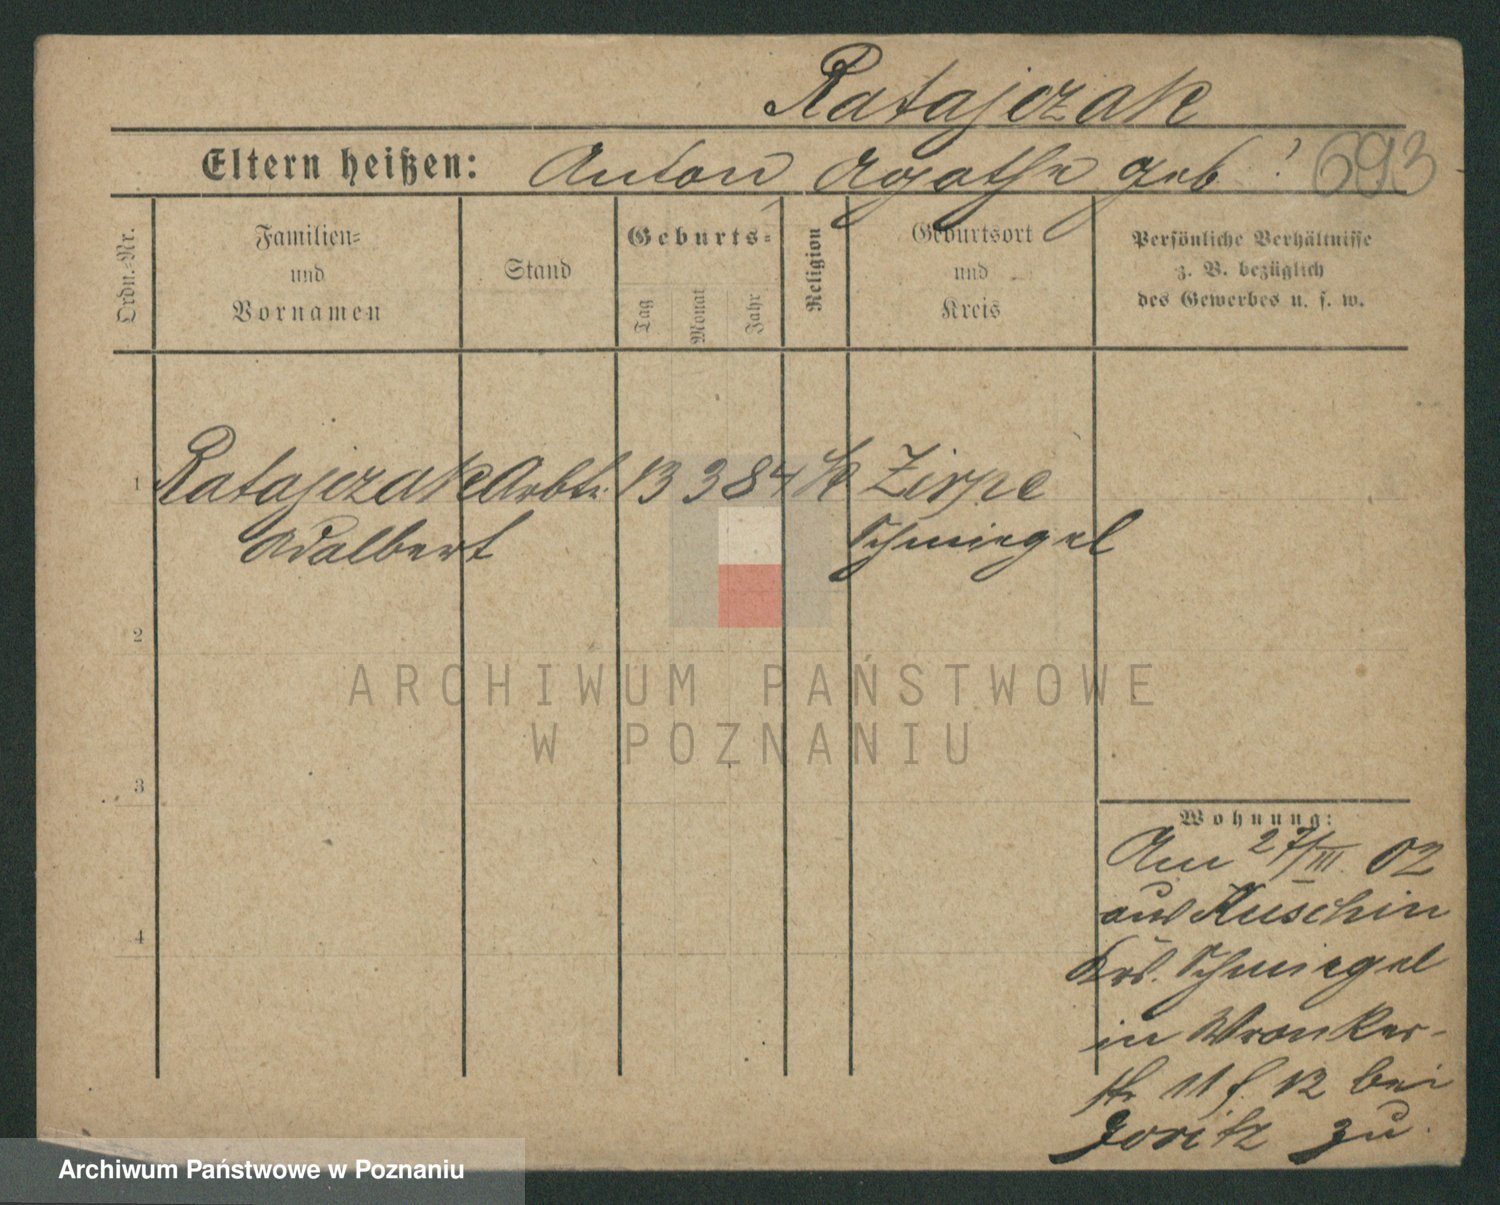 Ratajczak
Eltern heißen: Anton Agathe geb ? 693
Ordn.-Nr.
Familien-
und
Vornamen
Stand
Geburts-
Tag
Monat
Jahr
Religion
Geburtsort
und
Kreis
Persönliche Verhältnisse
z. B. bezüglich
des Gewerbes u. s. w.
1 Ratajczak Arbtr. 13 3 84 k Zirpe
Adalbert Schmiegel
2
3
4
ARCHIWUM PAŃSTWOWE
W POZNANIU
Wohnung:
Am 27/III. 02
aus Kuschin
Krs. Schmiegel
in Wronker-
str 11 12 bei
zu.
Archiwum Państwowe w Poznaniu